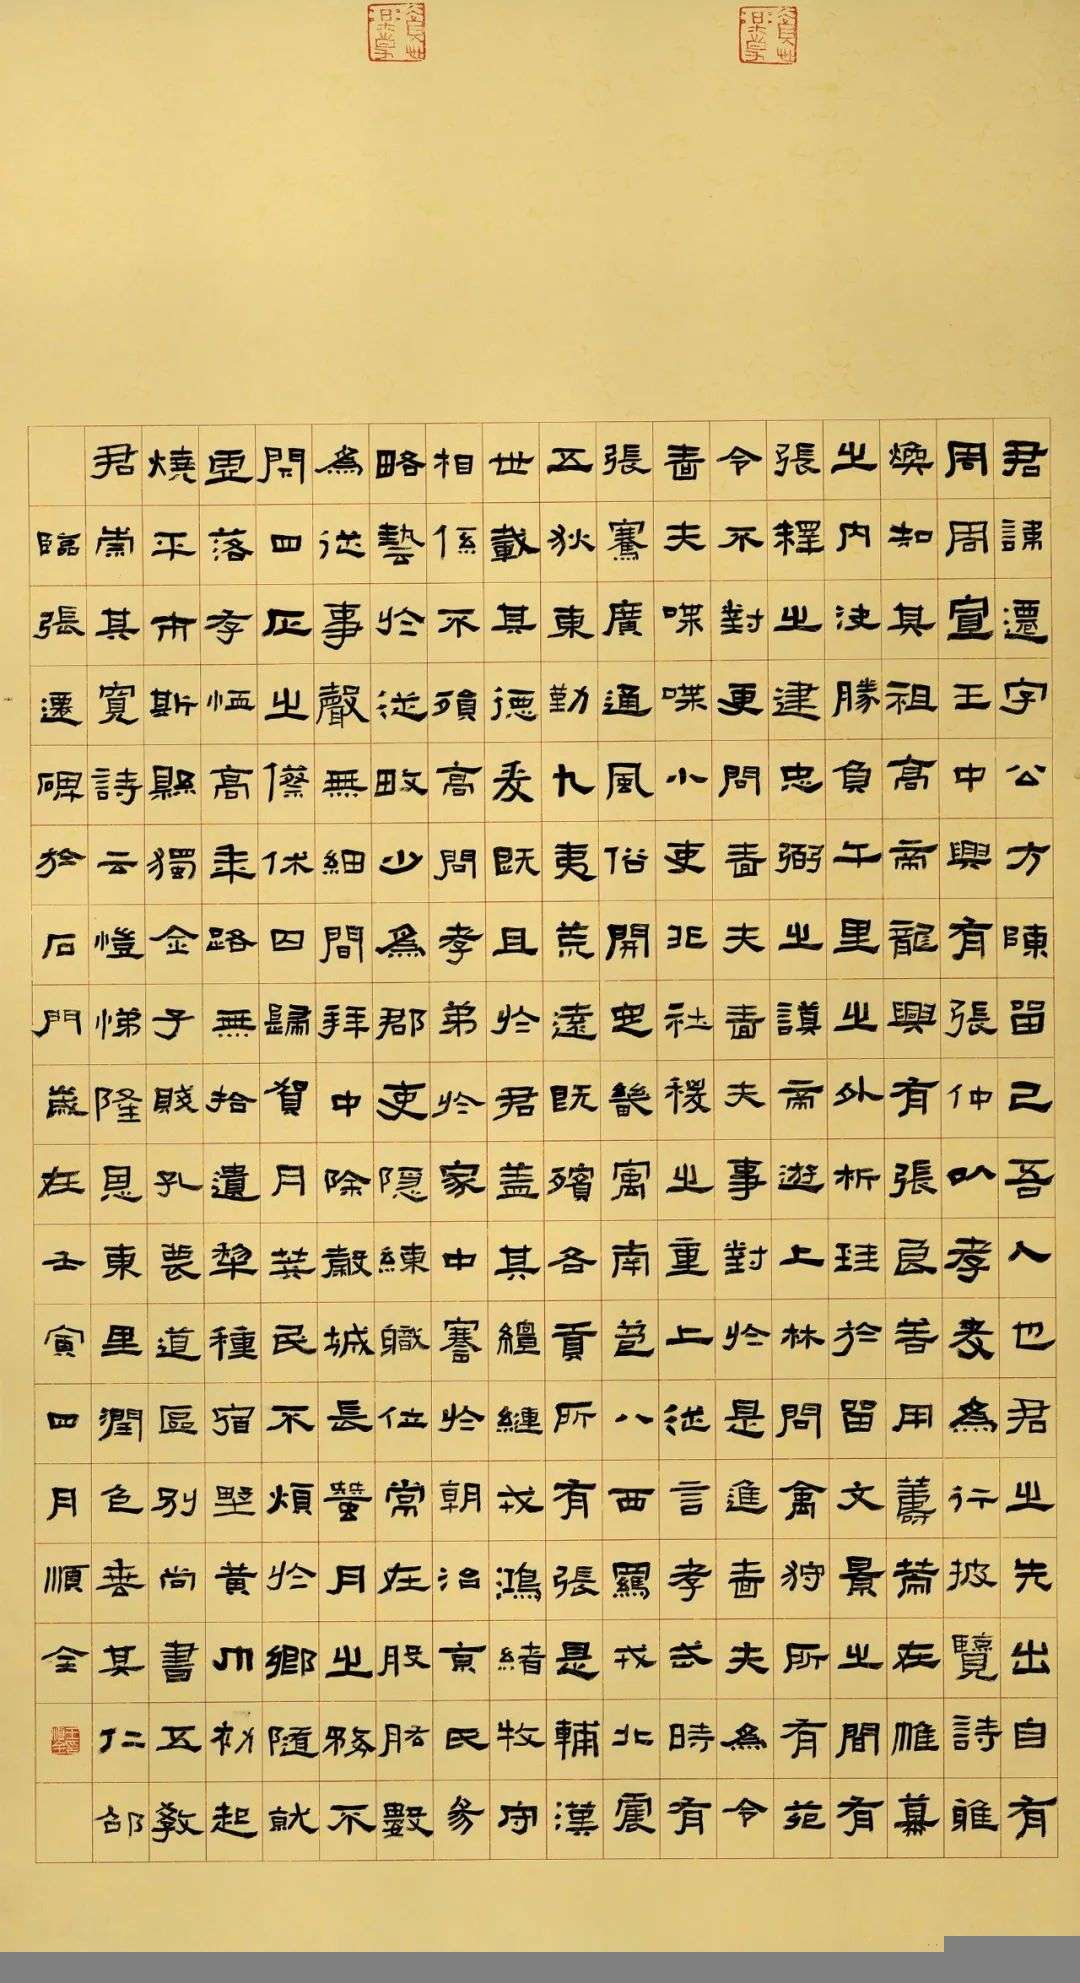 君諱遷字公方陳留己吾人也君之先出自有
周周宣王中興有張仲以孝友為行披覽詩雅
煥知其祖高帝龍興有張良善用籌策在帷幕
之內決勝負千里之外析珪於留文景之間有
張釋之建忠弼之謨帝遊上林問禽狩所有苑
令不對更問嗇夫嗇夫事對於是進嗇夫為令
嗇夫喋喋小吏非社稷之重上從言孝武時有
張騫廣通風俗開定畿寓南苞八西羈戎北震
五狄東勤九夷荒遠既殯各貢所有張是輔漢
世載其德爰既且於君盖其繵縺戎鴻緒牧守
相係不殞高問孝弟於家中謇於朝治京氏易
略藝於從畋少為郡吏隱練職位常在股肱數
為從事聲無細間拜中除穀城長蠶月之務不
閇四正之傺休囚歸賀月筭民不煩於鄉隨就
虛落存恤高年路無拾遺犁種宿野黃巾初起
燒平市斯縣獨全子賤孔蔑道區別尚書五教
君崇其寬詩云愷悌隆恩東里潤色垂其仁邵
臨張遷碑於石門歲在壬寅四月順全